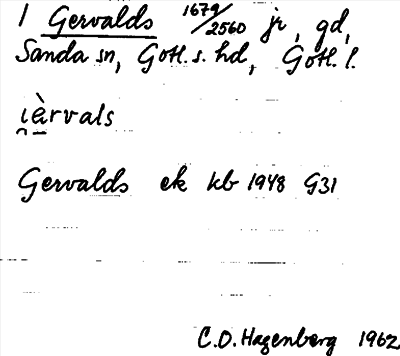 1 Gervalds 1679/2560 jr, gd,
Sanda sn, Gotl. s. hd, Gotl. l.
i̯èrvals
Gervalds ek kb 1948 G31
C.O. Hagenberg 1962